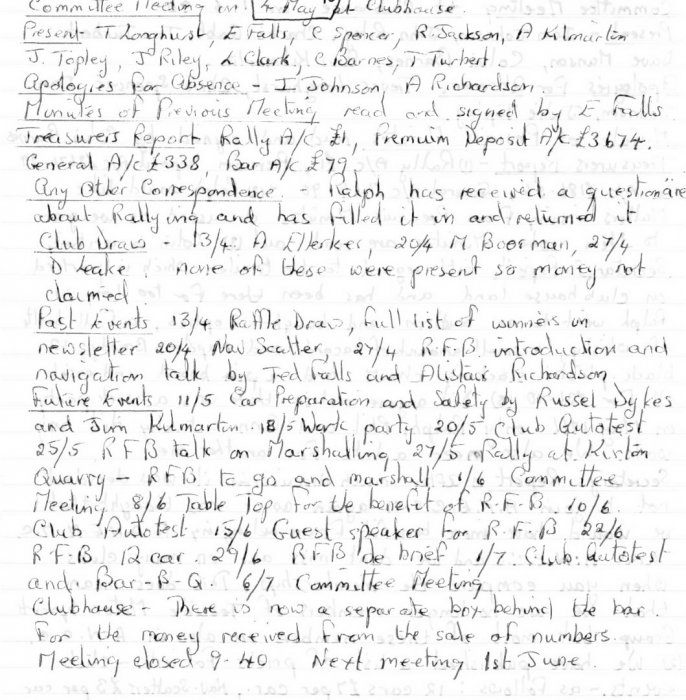 Committee Meeting on 4 May at Clubhouse.
Present - T Longhurst, E Falls, C Spencer, R Jackson, A Kilmartin
J. Topley, J Riley, L Clark, C Barnes, J Turbert
Apologies for Absence - I Johnson, A Richardson.
Minutes of Previous Meeting read and signed by E Falls.
Treasurers Report Rally A/c £1, Premium Deposit A/c £3674.
General A/c £338, Bar A/c £79,
Any Other Correspondence. - Ralph has received a questionaire
about Rallying and has filled it in and returned it
Club Draw - 13/4. A Ellerker, 20/4 M Boorman, 27/4
D Leake - none of these were present so money not
claimed.
Past Events. 13/4 Raffle Draw, full list of winners in
newsletter 20/4 Nav Scatter, 27/4 R.F.B. introduction and
navigation talk by Ted Falls and Alistair Richardson
Future Events 11/5 Car Preparation and Safety by Russel Dykes
and Jim Kilmartin 18/5 Work party 20/5 Club Autotest
25/5 R F B talk on Marshalling 27/5 Rally at Kirton
Quarry - RFB to go and marshall. 1/6 Committee
Meeting 8/6 Table Top for the benefit of R.F.B. 10/6.
Club Autotest 15/6 Guest speaker for R.F.B 22/6
R.F.B 12 car. 29/6 R.F.B de brief. 1/7. Club Autotest
and Bar-B.Q. 6/7 Committee Meeting
Clubhouse - There is now a separate box behind the bar.
for the money received from the sale of numbers.
Meeting closed 9-40 Next meeting 1st June.